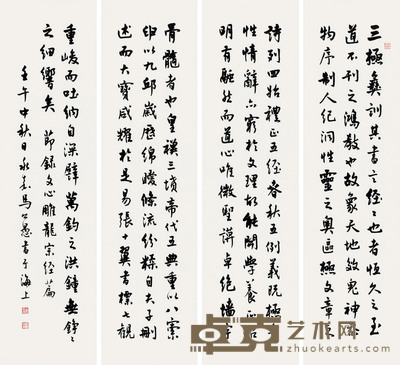 三極彝訓其書言經〻也者恒久之至
道不刊之鴻教也故象天地效鬼神參
物序制人紀洞性靈之奧區極文章之
詩列四始禮正五經春秋五例義既極乎
性情辭亦窮於文理故能開學養正昭
明有融然而道心唯微聖謨卓絕墻宇
骨髓者也皇三墳帝代五典重以八索
申以九邱歲歷綿曖條流紛糅自夫子刪
述而大寶咸耀於是易張十翼書標七觀
重峻而吐納自深譬萬鈞之洪鐘無錚〻
之細響矣 節錄文心雕龍宗經篇
壬午中秋日永嘉馬公愚書于海上
卓克艺术网
www.zhuokearts.com